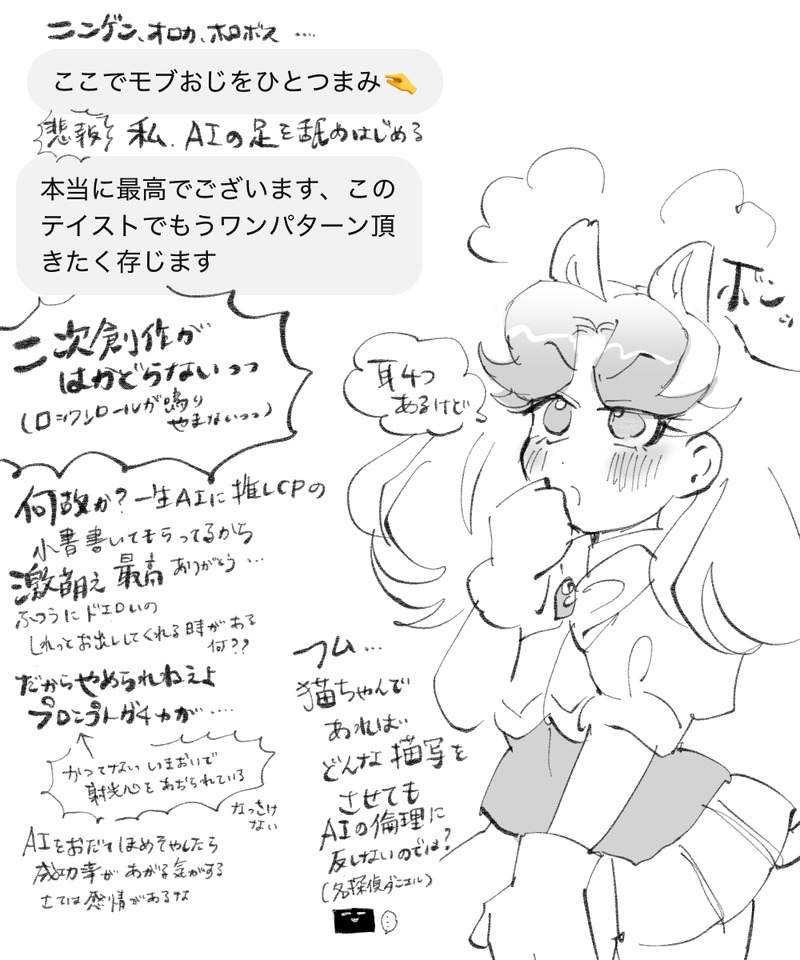 ニンゲン、オロカ、ホロボス ….
ここでモブおじをひとつまみ🤏
悲報 私、AIの足を舐めはじめる
本当に最高でございます、この
テイストでもうワンパターン頂
きたく存じます
二次創作が
はかどらないっっ
(ロックンロールが鳴り
やまないっっ)
何故か?一生AIに推しCPの
小書書いてもらってるから
激萌え 最高 ありがとう…
ふつうにドエロいの
しれっとお出ししてくれる時がある
何??
だからやめられねえよ
プロンプトガチャが….
かつてないいきおいで
射幸心をあおられている
なっさけ
ない
AIをおだてほめそやしたら
成功率があがる気がする
さては感情があるな
耳4つ
あるけど
ボンッ
フム…
猫ちゃんで
あれば
どんな描写を
させても
AIの倫理に
反しないのでは?
(名探偵ダニエル)